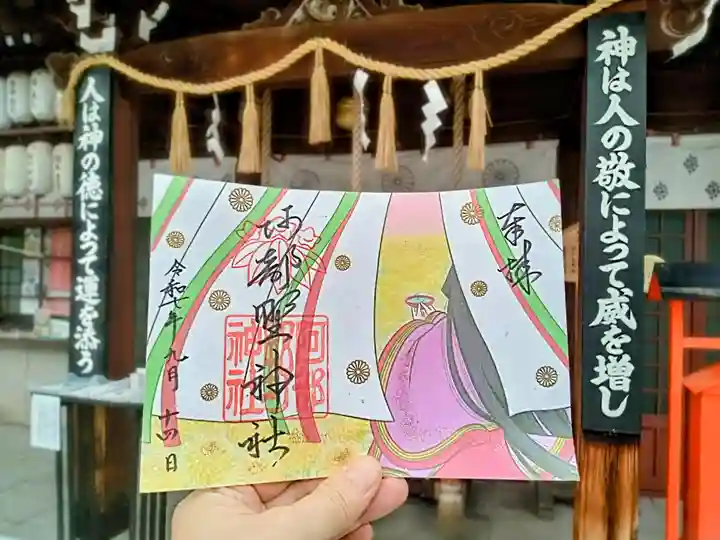 神は人の敬によって威を増し
人は神の徳によって運を添う
奉拝
阿部野神社
阿部野神社
令和七年九月十四日